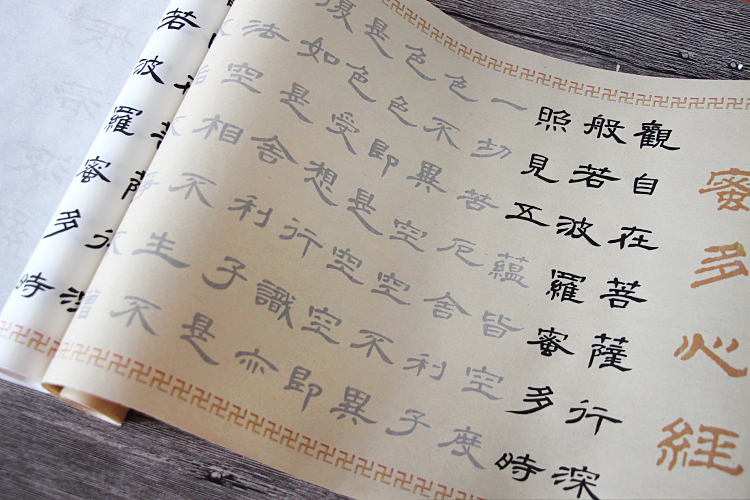 蜜多心經
觀自在菩薩行深
般若波羅蜜多時
照見五蘊皆空度
一切苦厄舍利子
色不異空空不異
色色即是空空即
是色受想行識亦
復如是舍利子是
法空相不生不
若波羅蜜多時